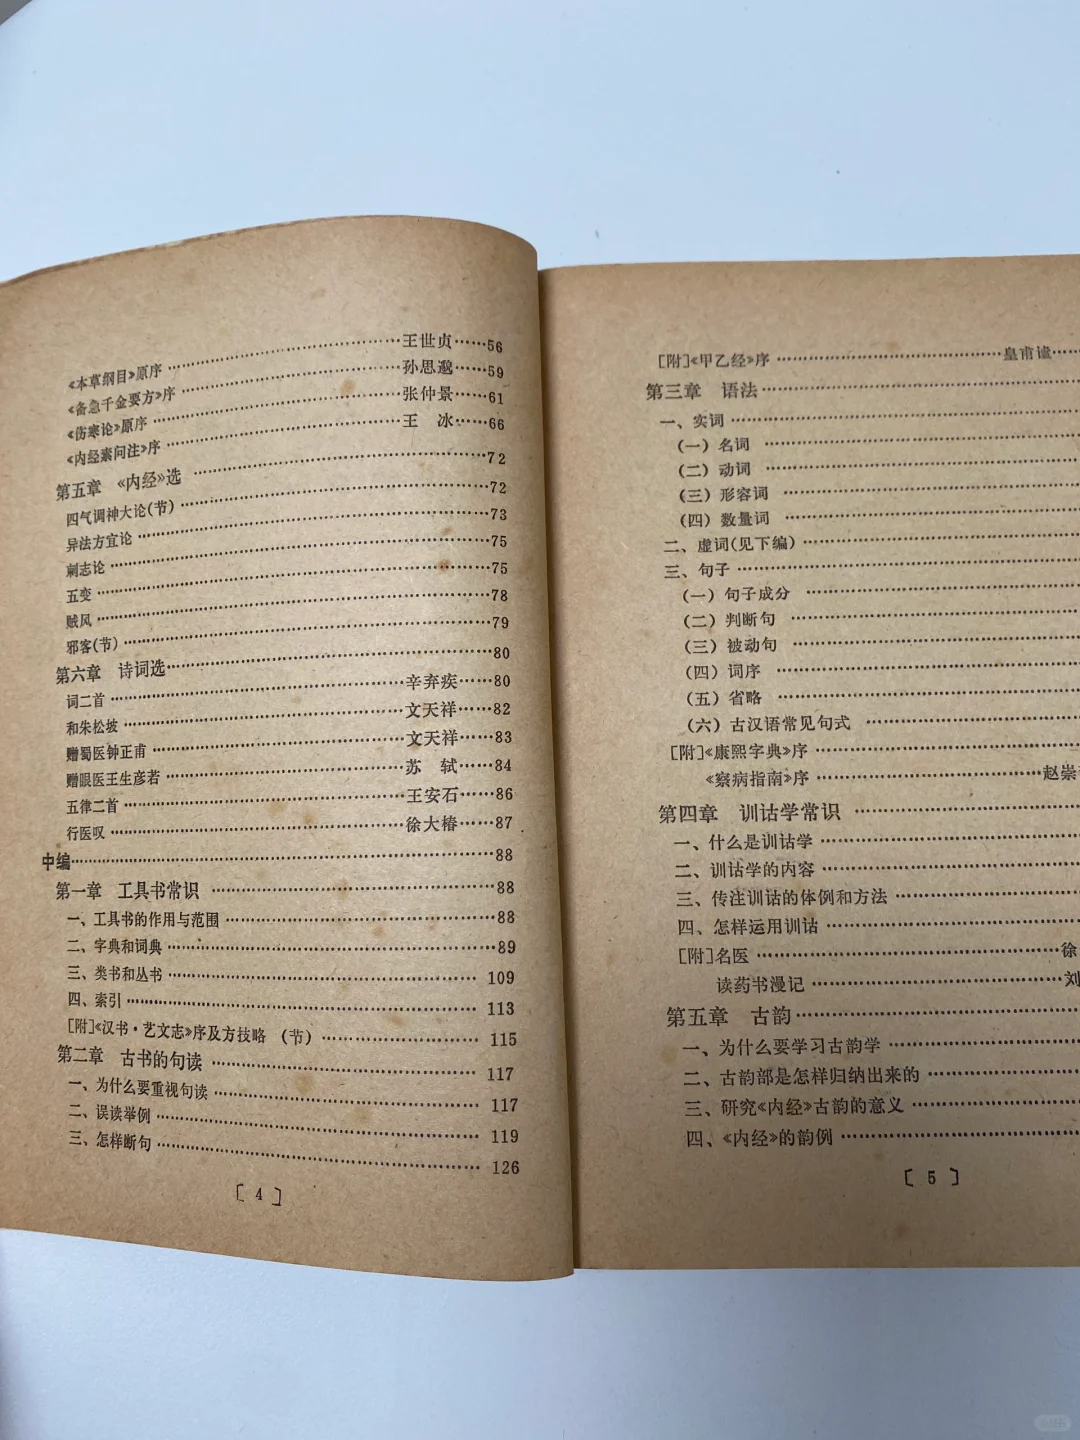 《本草纲目》原序……王世贞……56
《备急千金要方》序……孙思邈……59
《伤寒论》原序……张仲景……61
《内经素问注》序……王 冰……66
第五章 《内经》选……72
四气调神大论(节)……72
异法方宜论……73
刺志论……75
五变……75
贼风……78
邪客(节)……79
第六章 诗词选……80
词二首……辛弃疾……80
和朱松坡……文天祥……82
赠蜀医钟正甫……文天祥……83
赠眼医王生彦若……苏 轼……84
五律二首……王安石……86
行医叹……徐大椿……87
中编……88
第一章 工具书常识……88
一、工具书的作用与范围……88
二、字典和词典……89
三、类书和丛书……109
四、索引……113
[附]《汉书·艺文志》序及方技略 (节)……115
第二章 古书的句读……117
一、为什么要重视句读……117
二、误读举例……119
三、怎样断句……126
〔 4 〕
[附]《甲乙经》序……皇甫谧……
第三章 语法……
一、实词……
(一) 名词……
(二) 动词……
(三) 形容词……
(四) 数量词……
二、虚词(见下编)……
三、句子……
(一) 句子成分……
(二) 判断句……
(三) 被动句……
(四) 词序……
(五) 省略……
(六) 古汉语常见句式……
[附]《康熙字典》序……
《察病指南》序……赵崇
第四章 训诂学常识……
一、什么是训诂学……
二、训诂学的内容……
三、传注训诂的体例和方法……
四、怎样运用训诂……
[附]名医……徐
读药书漫记……刘
第五章 古韵……
一、为什么要学习古韵学……
二、古韵部是怎样归纳出来的……
三、研究《内经》古韵的意义……
四、《内经》的韵例……
〔 5 〕